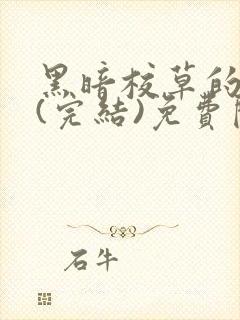 黑暗校草的
(完結)免費
石牛